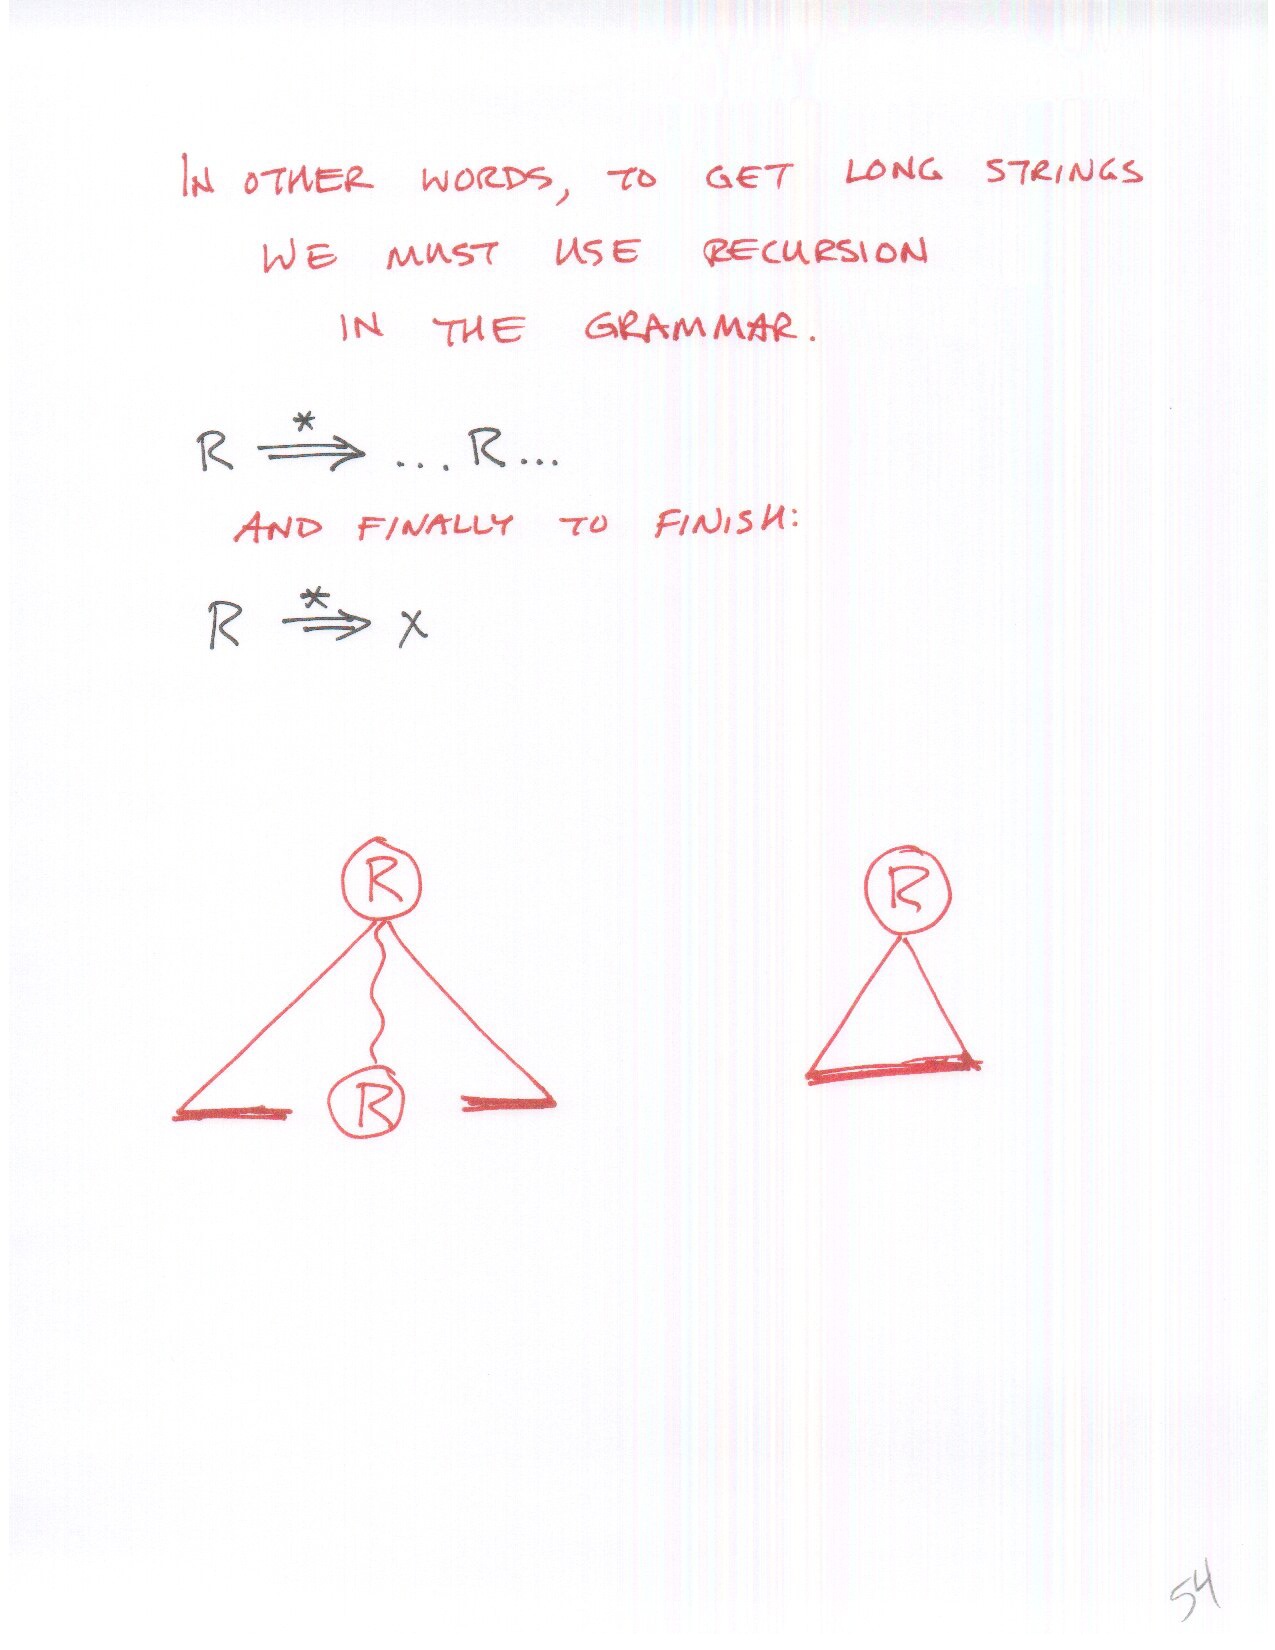 IN OTHER WORDS, TO GET LONG STRINGS
WE MUST USE RECURSION
IN THE GRAMMAR.
R *⟹ ...R...
AND FINALLY TO FINISH:
R *⟹ X
R R
R
54